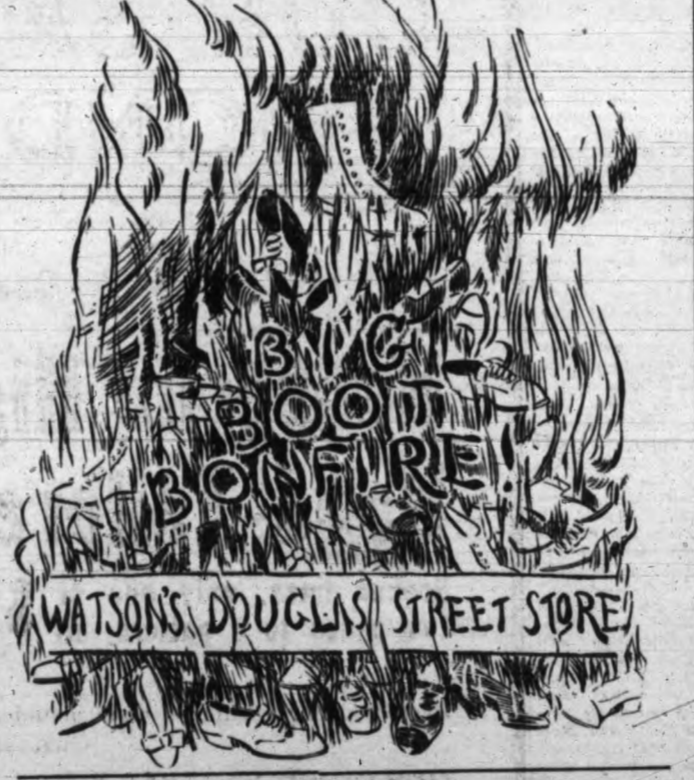 BIG
BOOT
BONFIRE!
WATSON'S DOUGLAS STREET STORE